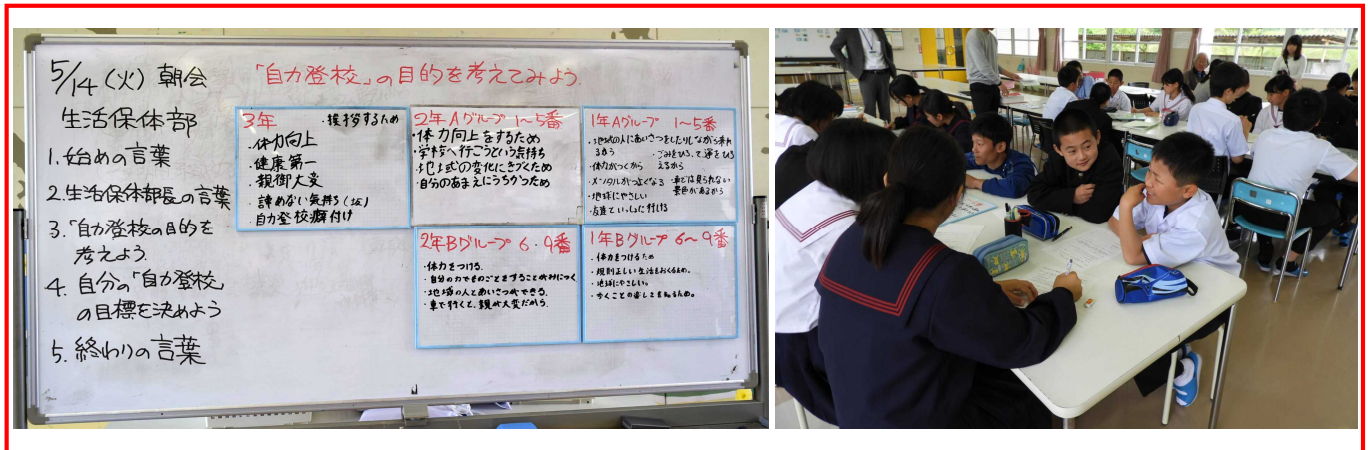 5/14(火) 朝会
「自力登校」の目的を考えてみよう。
生活保体部
1.始めの言葉
2.生活保体部長の言葉
3.「自力登校の目的を
考えよう。
4.自分の「自力登校」
の目標を決めよう
5.終わりの言葉
3年
・挨拶するため
・体力向上
・健康第一
・親御大変
・諦めない気持ち(坂)
・自力登校癖付け
2年Aグループ 1〜5番
・体力向上をするため
・学校へ行こうという気持ち
・地域の変化にきづくため
・自分のあまえにうちかつため
1年Aグループ 1〜5番
・地域の人にあいさつをしたりしながら来れ
るから
・ごみをひろって運をひろ
えるから
・体力がつくから
・メンタルがつよくなる
・車では見られない
景色があるから
・地球にやさしい
・友達といっしょに行ける
2年Bグループ 6・9番
・体力をつける。
・自分の力でものごとをすることが身につく
・地域の人とあいさつができる
・車で行くと、親が大変だから。
1年Bグループ 6〜9番
・体力をつけるため
・規則正しい生活をおくるため。
・地球にやさしい。
・歩くことの楽しさを知るため。